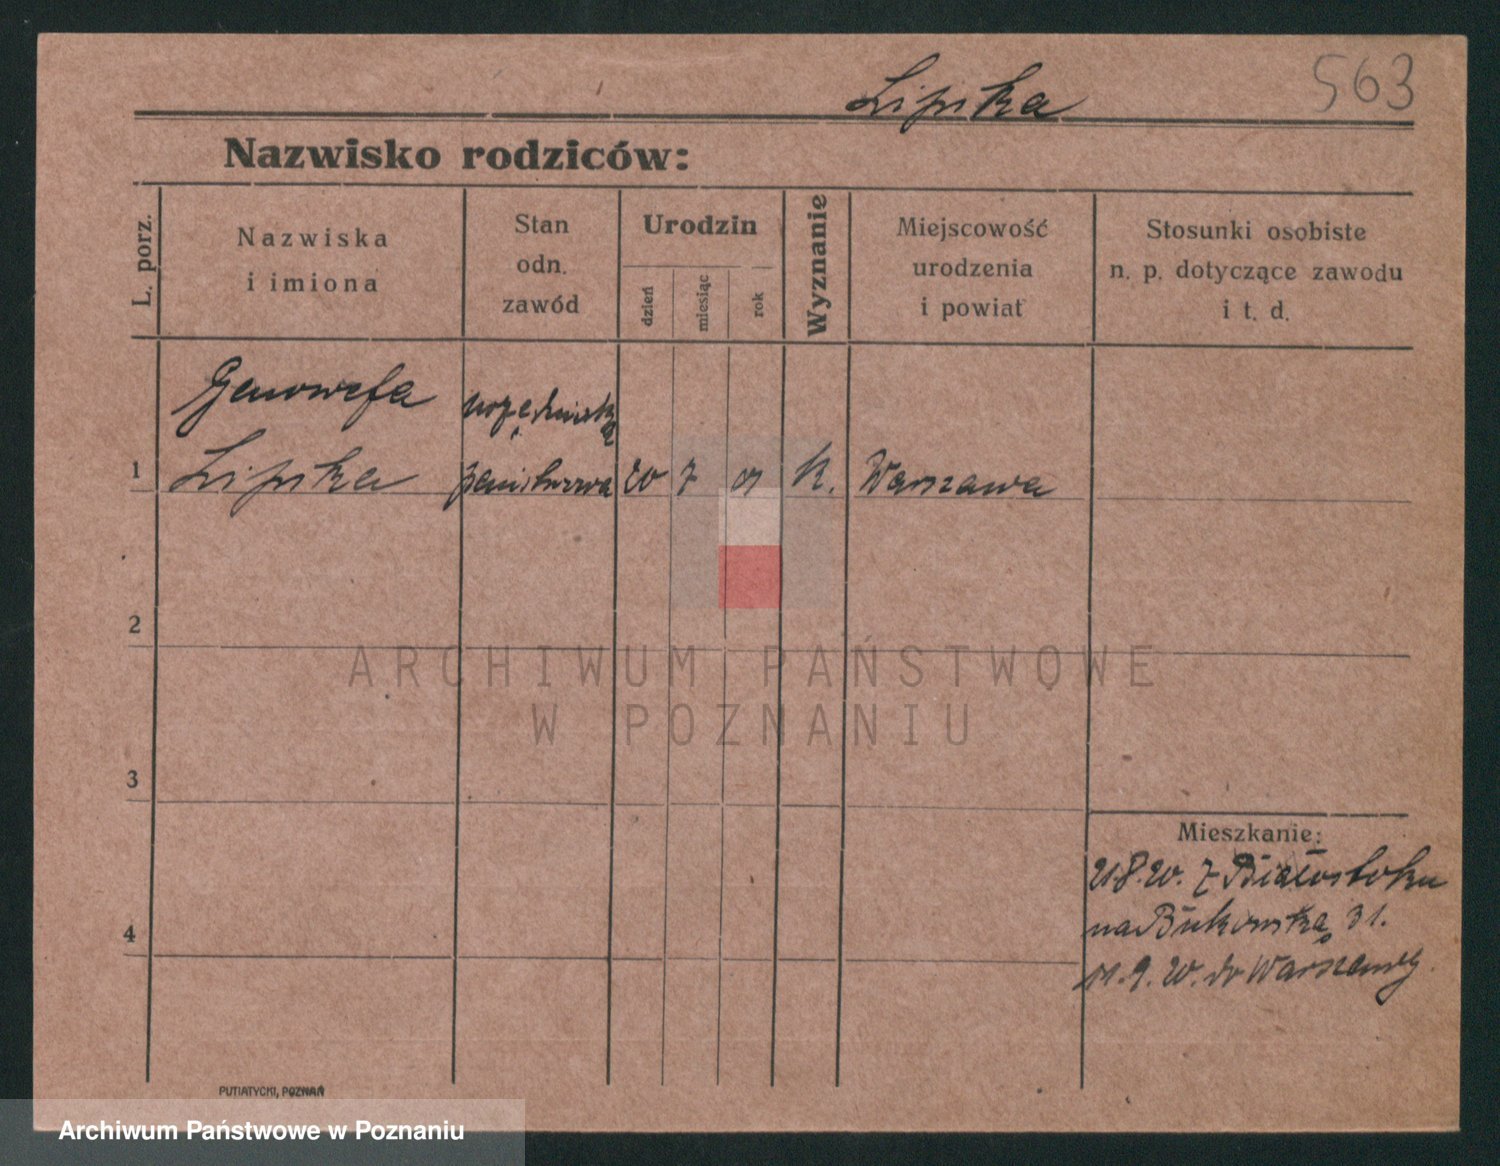 563
Lipska
Nazwisko rodziców:
L. porz.
Nazwiska
i imiona
Stan
odn.
zawód
Urodzin
dzień
miesiąc
rok
Wyznanie
Miejscowość
urodzenia
i powiat
Stosunki osobiste
n. p. dotyczące zawodu
i t. d.
Genowefa urzędniczka
1 Lipska państwowa 20 7 01 k. Warszawa
2
ARCHIWUM PAŃSTWOWE
W POZNANIU
3
Mieszkanie:
21.8.20. z Białostoku
4 na Bukowską 31.
11.9.20. do Warszawy.
PUTIATYCKI, POZNAŃ
Archiwum Państwowe w Poznaniu